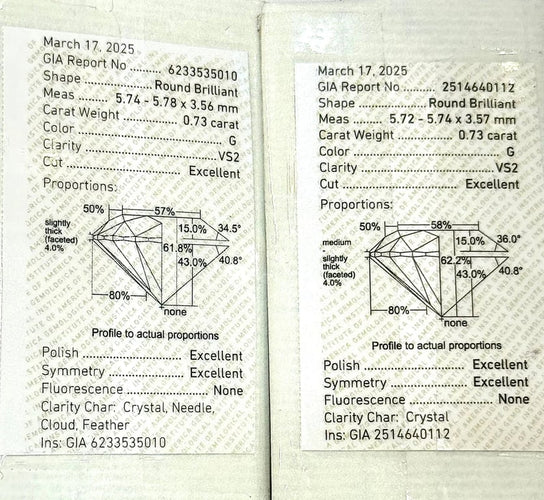 March 17, 2025
GIA Report No .......... 6233535010
Shape .................. Round Brilliant
Meas ........ 5.74 - 5.78 x 3.56 mm
Carat Weight .............. 0.73 carat
Color .................................... G
Clarity ................................ VS2
Cut ............................ Excellent
Proportions:
50%
57%
slightly
thick
(faceted)
4.0%
15.0%
34.5°
61.8%
43.0%
40.8°
80%
none
Profile to actual proportions
Polish ........................ Excellent
Symmetry .................. Excellent
Fluorescence .................. None
Clarity Char: Crystal, Needle,
Cloud, Feather
Ins: GIA 6233535010
March 17, 2025
GIA Report No .......... 2514640112
Shape .................. Round Brilliant
Meas ........ 5.72 - 5.74 x 3.57 mm
Carat Weight .............. 0.73 carat
Color .................................... G
Clarity ................................ VS2
Cut ............................ Excellent
Proportions:
50%
58%
medium
-
slightly
thick
(faceted)
4.0%
15.0%
36.0°
62.2%
43.0%
40.8°
80%
none
Profile to actual proportions
Polish ........................ Excellent
Symmetry .................. Excellent
Fluorescence .................. None
Clarity Char: Crystal
Ins: GIA 2514640112